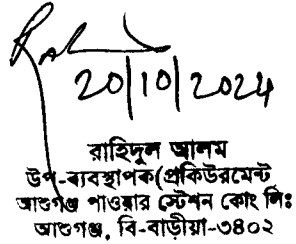 20/10/2024
রাহিদুল আলম
উপ-ব্যবস্থাপক(প্রকিউরমেন্ট
আশুগঞ্জ পাওয়ার স্টেশন কোং লিঃ
আশুগঞ্জ, বি-বাড়ীয়া-৩৪০২